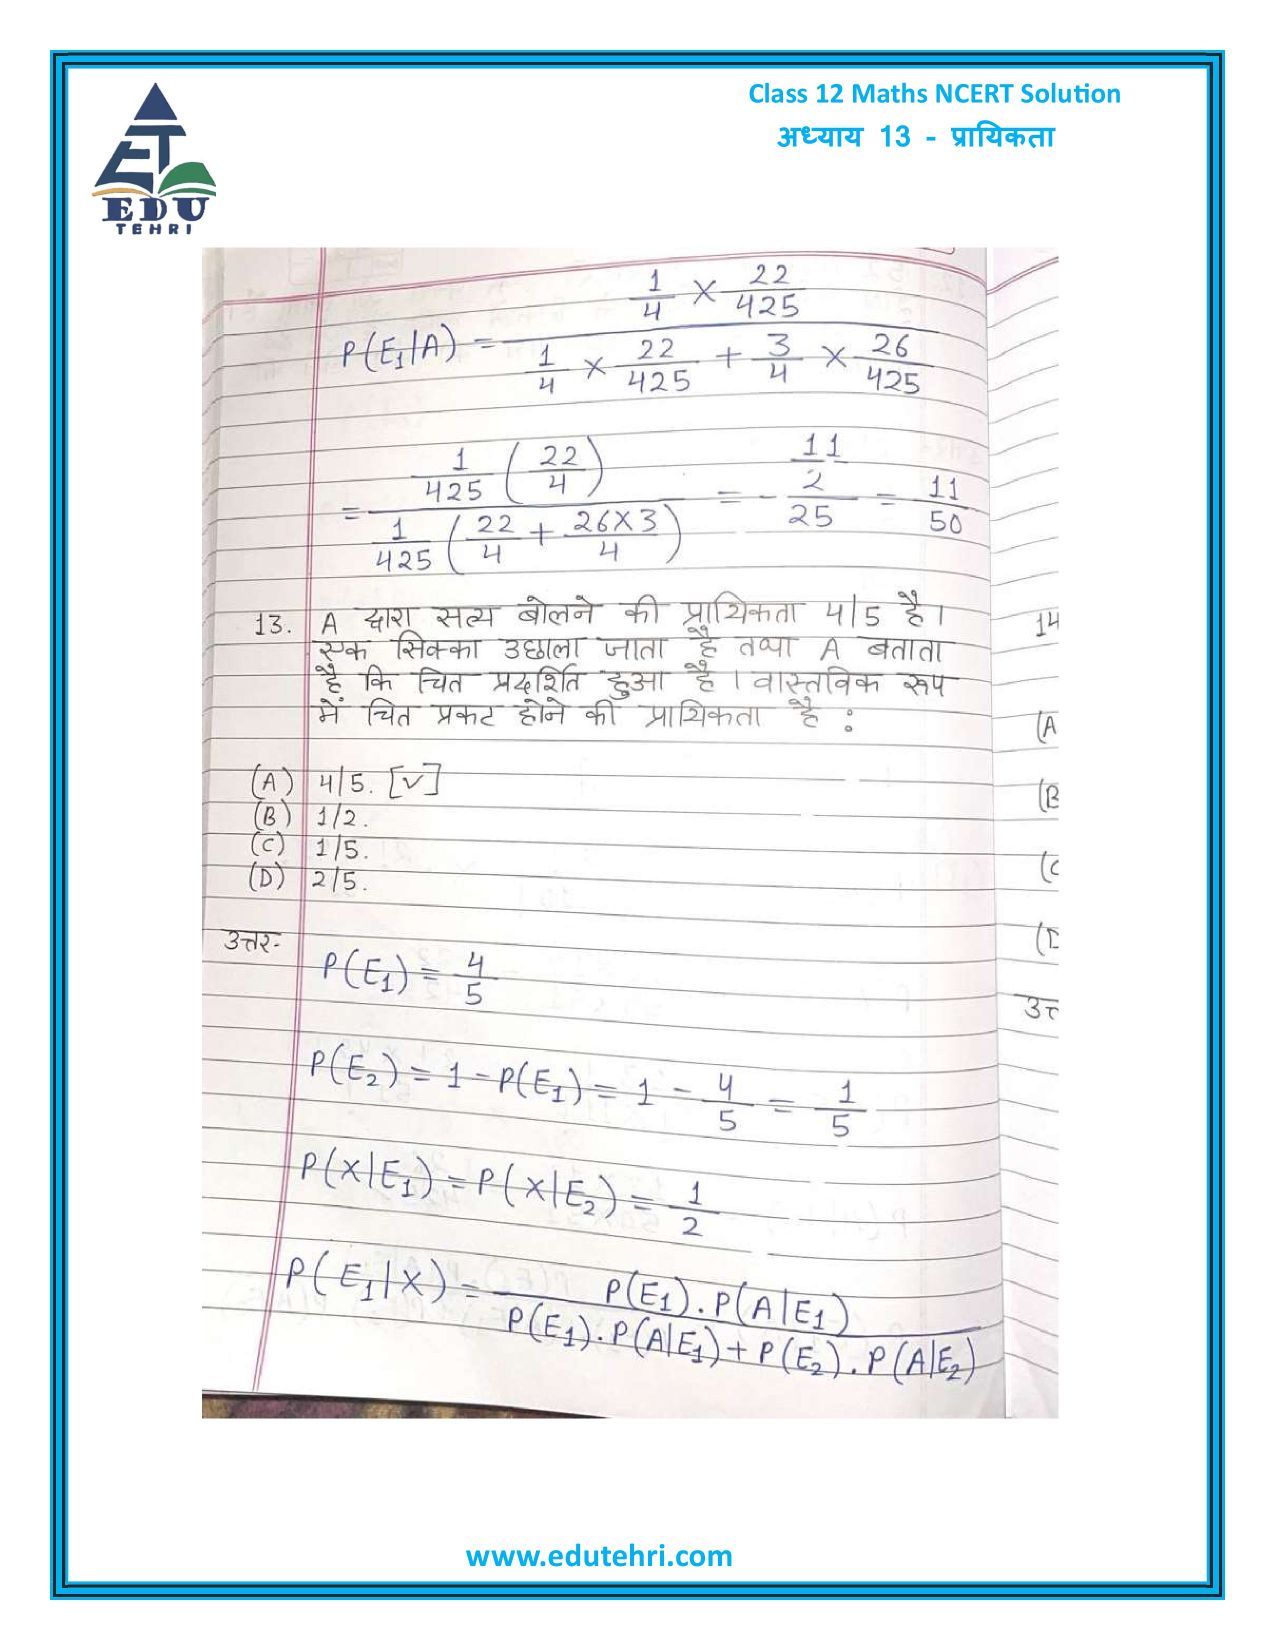 Class 12 Maths NCERT Solution
अध्याय 13 - प्रायिकता
EDU
TEHRI
P(E₁|A) = (1/4 × 22/425) / (1/4 × 22/425 + 3/4 × 26/425)
= (1/425 (22/4)) / (1/425 (22/4 + 26×3/4)) = - (11/2)/25 = 11/50
13. A द्वारा सत्य बोलने की प्रायिकता 4/5 है।
एक सिक्का उछाला जाता है तथा A बताता
है कि चित प्रदर्शित हुआ है। वास्तविक रूप
में चित प्रकट होने की प्रायिकता है :
(A) 4/5. [✓]
(B) 1/2.
(C) 1/5.
(D) 2/5.
उत्तर-
P(E₁) = 4/5
P(E₂) = 1 - P(E₁) = 1 - 4/5 = 1/5
P(X|E₁) = P(X|E₂) = 1/2
P(E₁|X) = P(E₁).P(A|E₁) / P(E₁).P(A|E₁) + P(E₂).P(A|E₂)
14
(A
(B
(C
(D
उत्त
www.edutehri.com